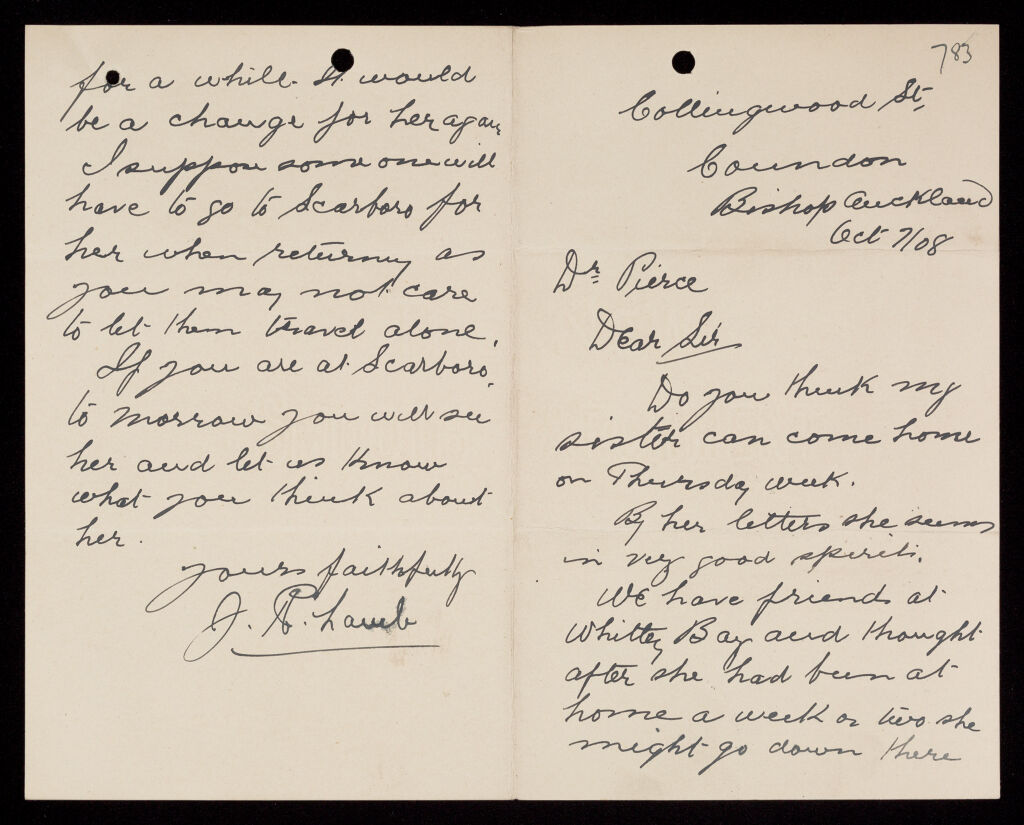 783
Collingwood St,
Coundon
Bishop Auckland
Oct 7/08
Dr. Pierce
Dear Sir
Do you think my
sister can come home
on Thursday week.
By her letters she seems
in very good spirits.
We have friends at
Whitley Bay and thought
after she had been at
home a week or two she
might go down there
for a while. It would
be a change for her again
I suppose some one will
have to go to Scarboro for
her when returning as
you may not care
to let them travel alone.
If you are at Scarboro,
to morrow you will see
her and let us know
what you think about
her.
yours faithfully
J. R. Lamb